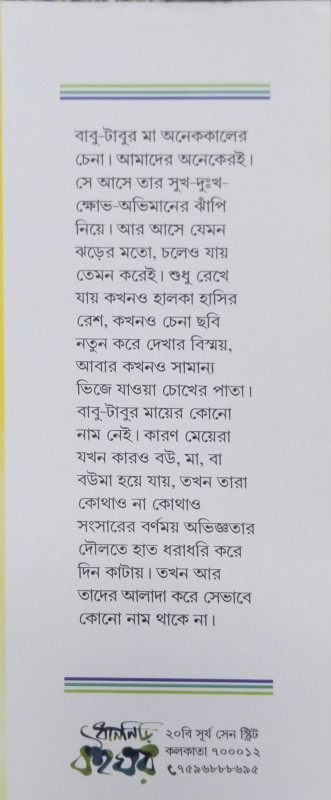 বাবু-টাবুর মা অনেককালের
চেনা। আমাদের অনেকেরই।
সে আসে তার সুখ-দুঃখ-
ক্ষোভ-অভিমানের ঝাঁপি
নিয়ে। আর আসে যেমন
ঝড়ের মতো, চলেও যায়
তেমন করেই। শুধু রেখে
যায় কখনও হালকা হাসির
রেশ, কখনও চেনা ছবি
নতুন করে দেখার বিস্ময়,
আবার কখনও সামান্য
ভিজে যাওয়া চোখের পাতা।
বাবু-টাবুর মায়ের কোনো
নাম নেই। কারণ মেয়েরা
যখন কারও বউ, মা, বা
বউমা হয়ে যায়, তখন তারা
কোথাও না কোথাও
সংসারের বর্ণময় অভিজ্ঞতার
দৌলতে হাত ধরাধরি করে
দিন কাটায়। তখন আর
তাদের আলাদা করে সেভাবে
কোনো নাম থাকে না।
ধানসিড়ি
বইঘর
২০বি সূর্য সেন স্ট্রিট
কলকাতা ৭০০০১২
৭৫৯৬৮৮৮৬৯৫